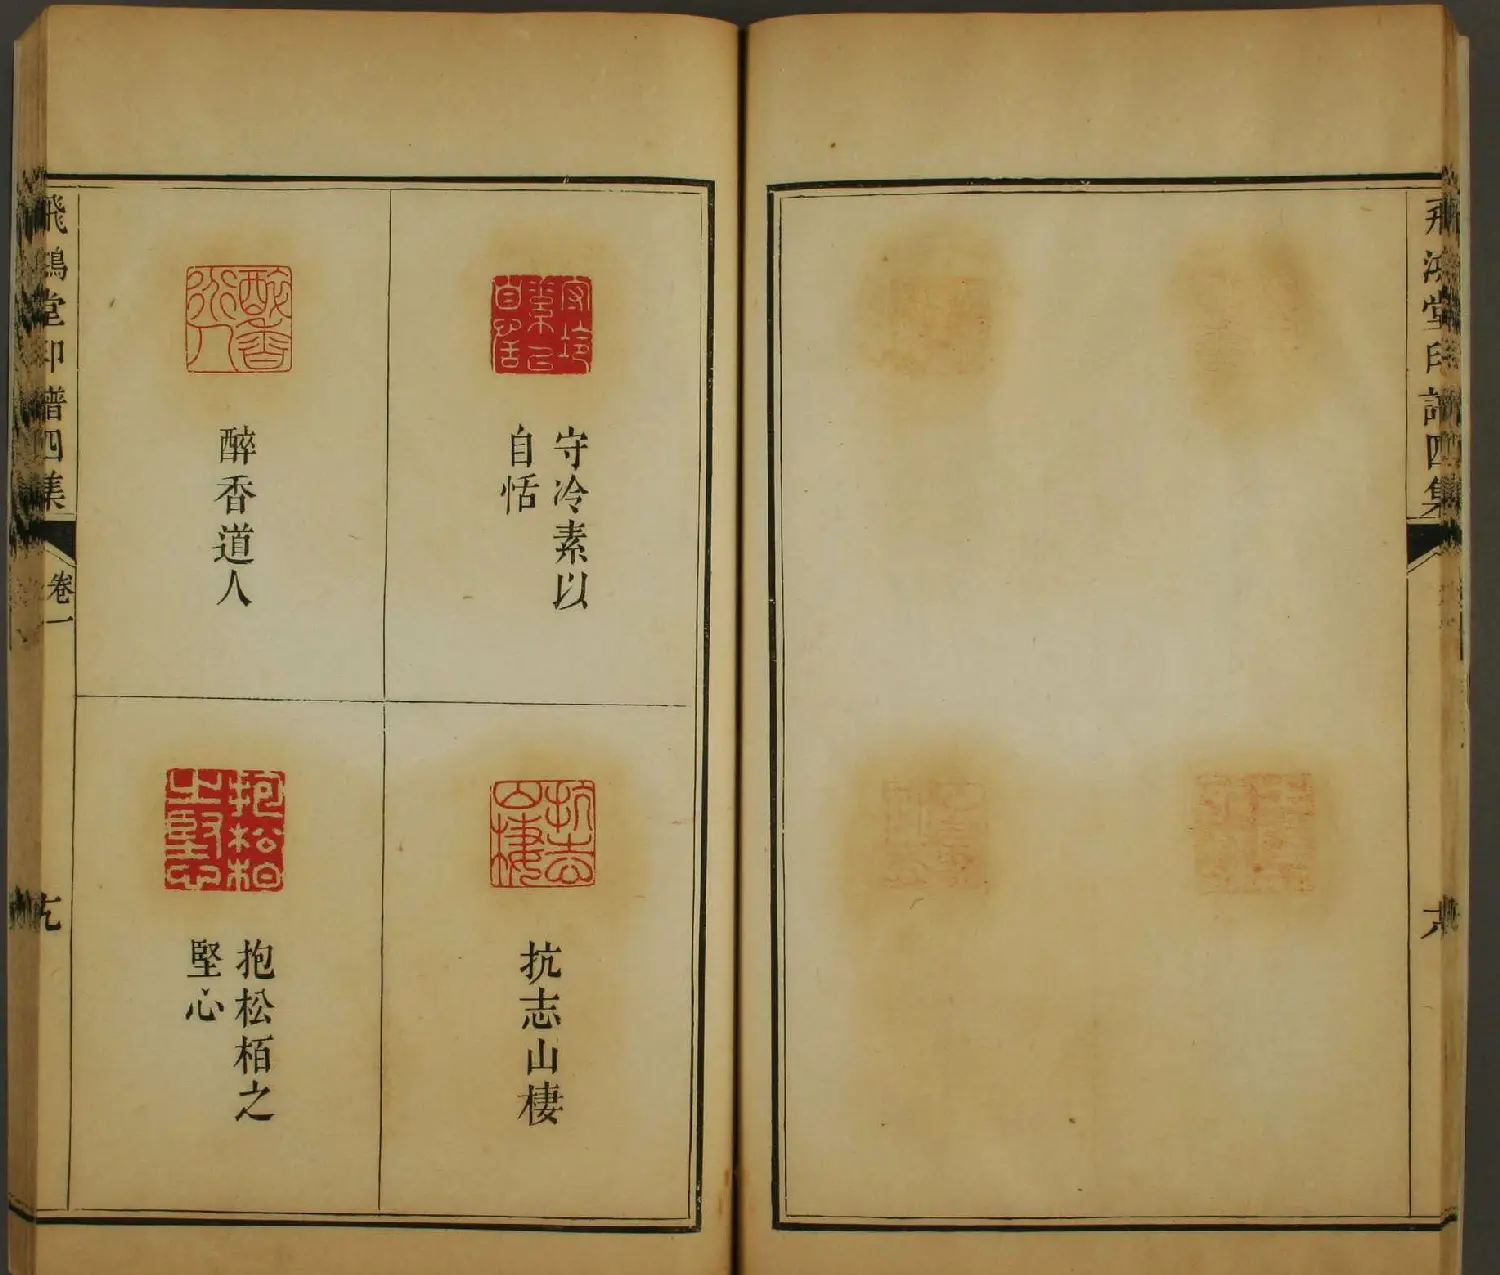 飛鴻堂印譜四集
守冷素以
自恬
抗志山棲
醉香道人
抱松栢之
堅心
飛鴻堂印譜四集
卷一